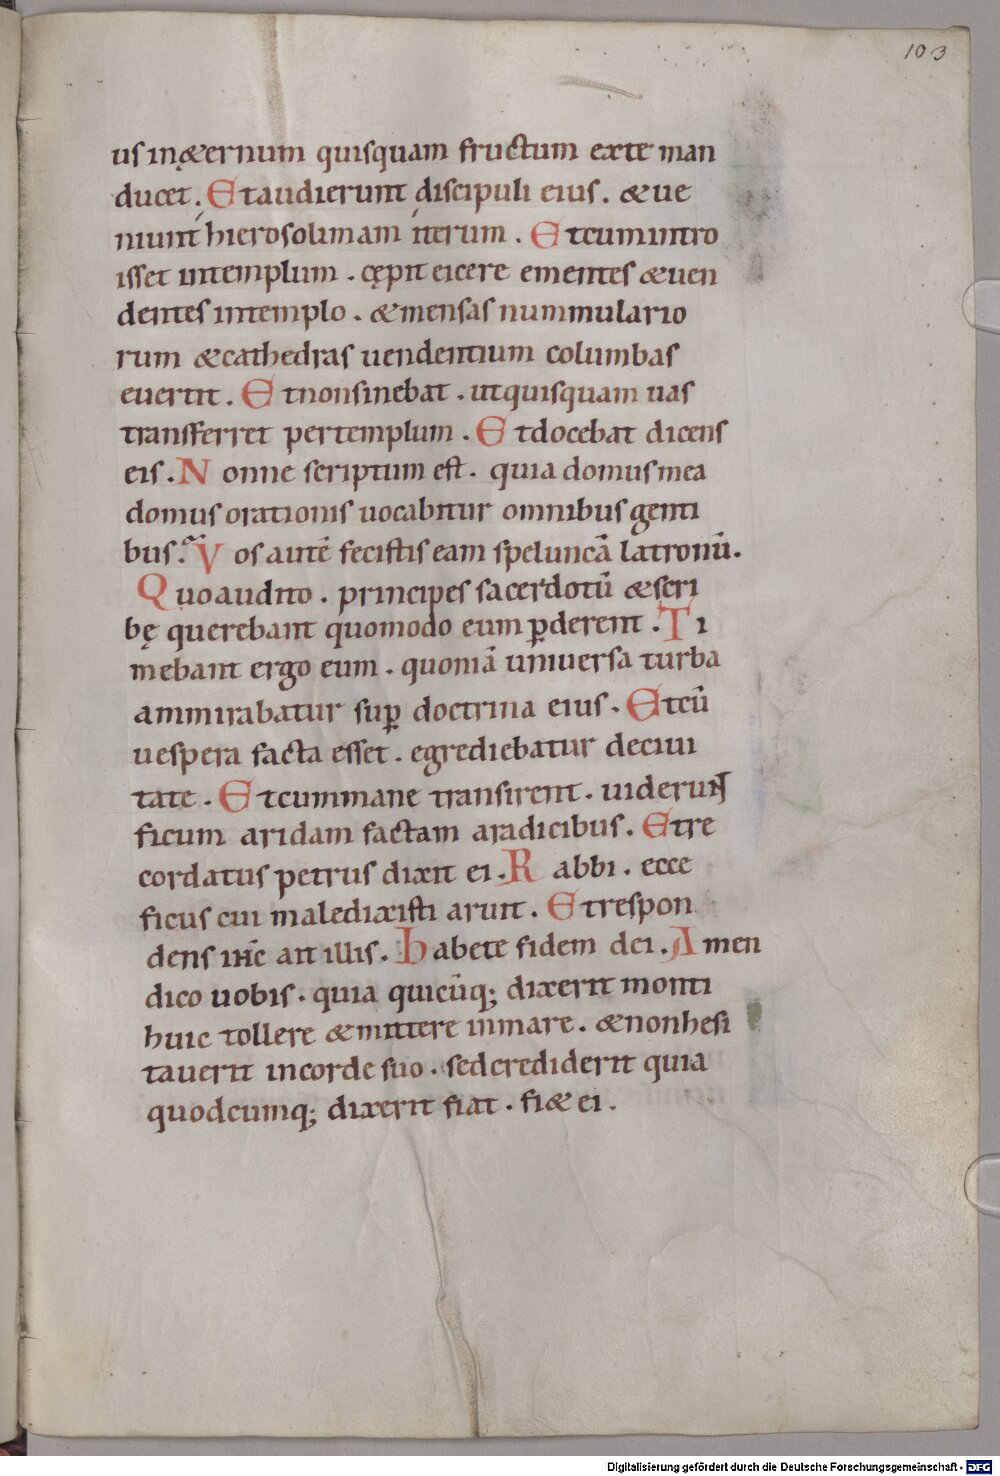 103
us inęternum quisquam fructum exte man
ducet. Et audierunt discipuli eius. & ue
niunt hierosolimam iterum. Et cum intro
isset intemplum. cępit eicere ementes & uen
dentes intemplo. & mensas nummulario
rum & cathedras uendentium columbas
euertit. Et nonsinebat. ut quisquam uas
transferret per templum. Et docebat dicens
eis. Nonne scriptum est. quia domus mea
domus orationis uocabitur omnibus genti
bus. Vos autē fecistis eam speluncā latronū.
Quo audito. principes sacerdotū & scri
bę querebant quomodo eum ꝑderent. Ti
mebant ergo eum. quoniā uniuersa turba
ammirabatur suꝑ doctrina eius. Et cū
uespera facta esset. egrediebatur deciui
tate. Et cum mane transirent. uiderunt
ficum aridam factam aradicibus. Et re
cordatus petrus dixit ei. Rabbi. ecce
ficus cui maledixisti aruit. Et respon
dens ihc̄ ait illis. habete fidem dei. Amen
dico uobis. quia quicūq; dixerit monti
huic tollere & mittere inmare. & non hesi
tauerit incorde suo. sed crediderit quia
quodcumq; dixerit fiat. fi& ei.
Digitalisierung gefördert durch die Deutsche Forschungsgemeinschaft - DFG